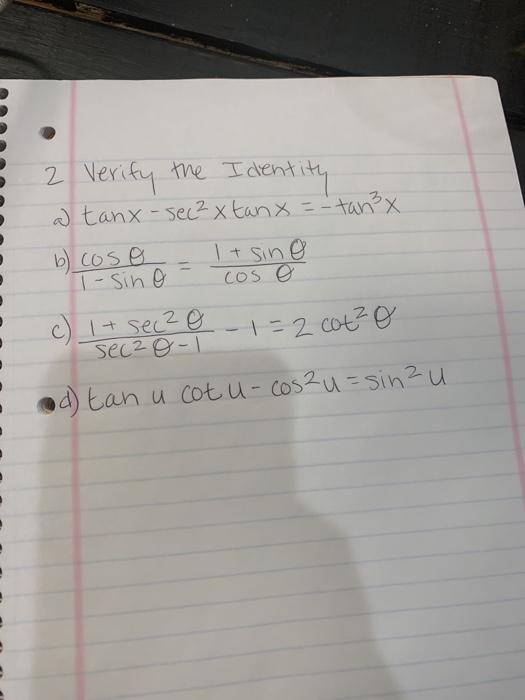 2 Verify the Identity
a) tanx - sec² x tanx = - tan³x
b) cos θ / 1 - sin θ = 1 + sin θ / cos θ
c) 1 + sec² θ / sec² θ - 1 - 1 = 2 cot² θ
d) tan u cot u - cos² u = sin² u